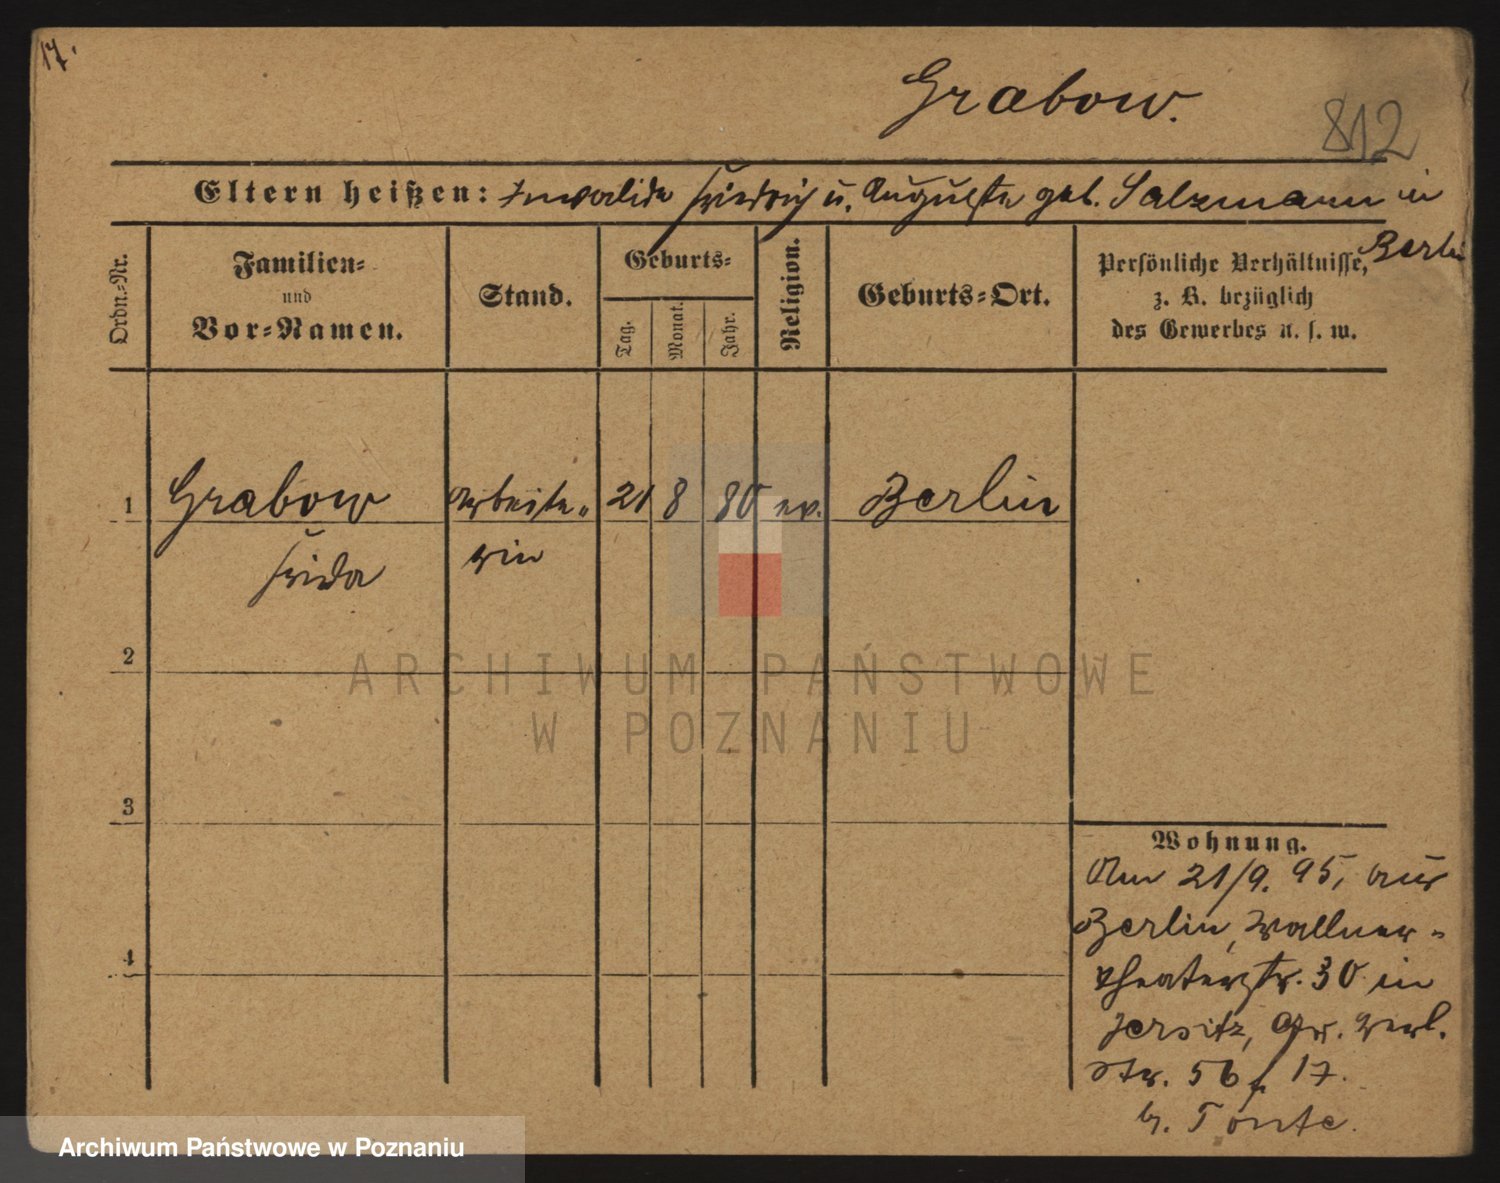 17.
Grabow.
812
Eltern heißen: Invalide Friedrich u. Auguste geb. Salzmann in
Berlin
Ordn.-Nr.
Familien-
und
Vor-Namen.
Stand.
Geburts-
Tag.
Monat.
Jahr.
Religion.
Geburts-Ort.
Persönliche Verhältnisse,
z. B. bezüglich
des Gewerbes u. s. w.
1 Grabow Arbeite- 21 8 80 ev. Berlin
Frida rin
2
3
4
Wohnung.
Am 21/9. 95, aus
Berlin, Wallner-
theaterstr. 30 in
Jersitz, Gr. Berl.
Str. 56 17.
b. Tonte.
ARCHIWUM PAŃSTWOWE
W POZNANIU
Archiwum Państwowe w Poznaniu